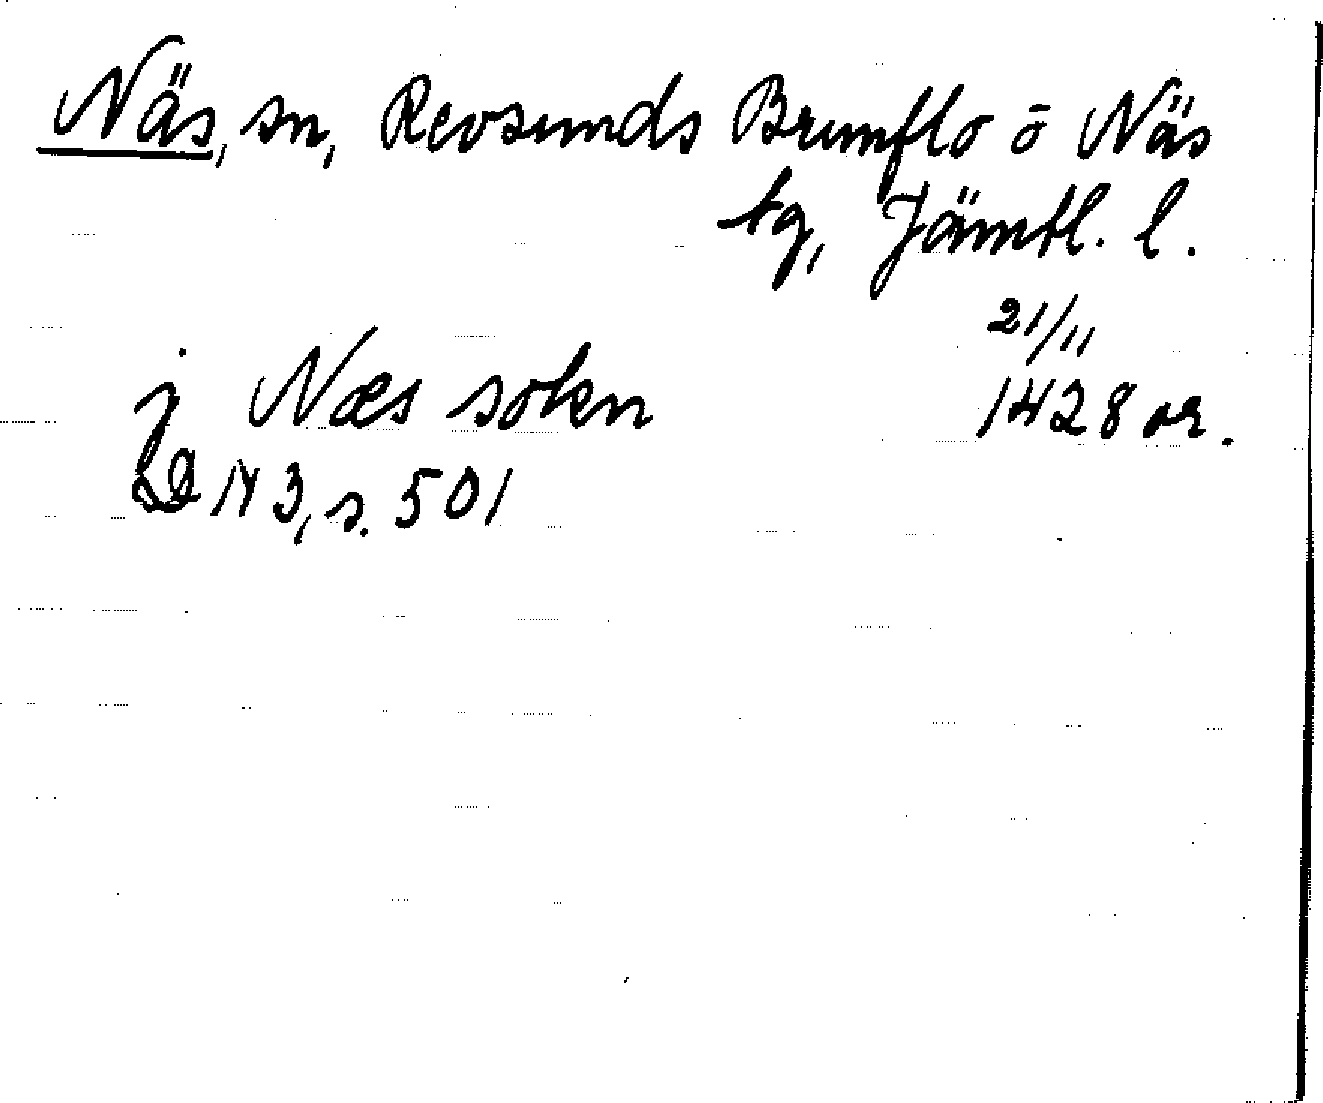 Näs, sn, Revsunds Brunflo o Näs
tg, Jämtl. l.
21/11
j Næs sokn 1428 or.
N 3, s. 501